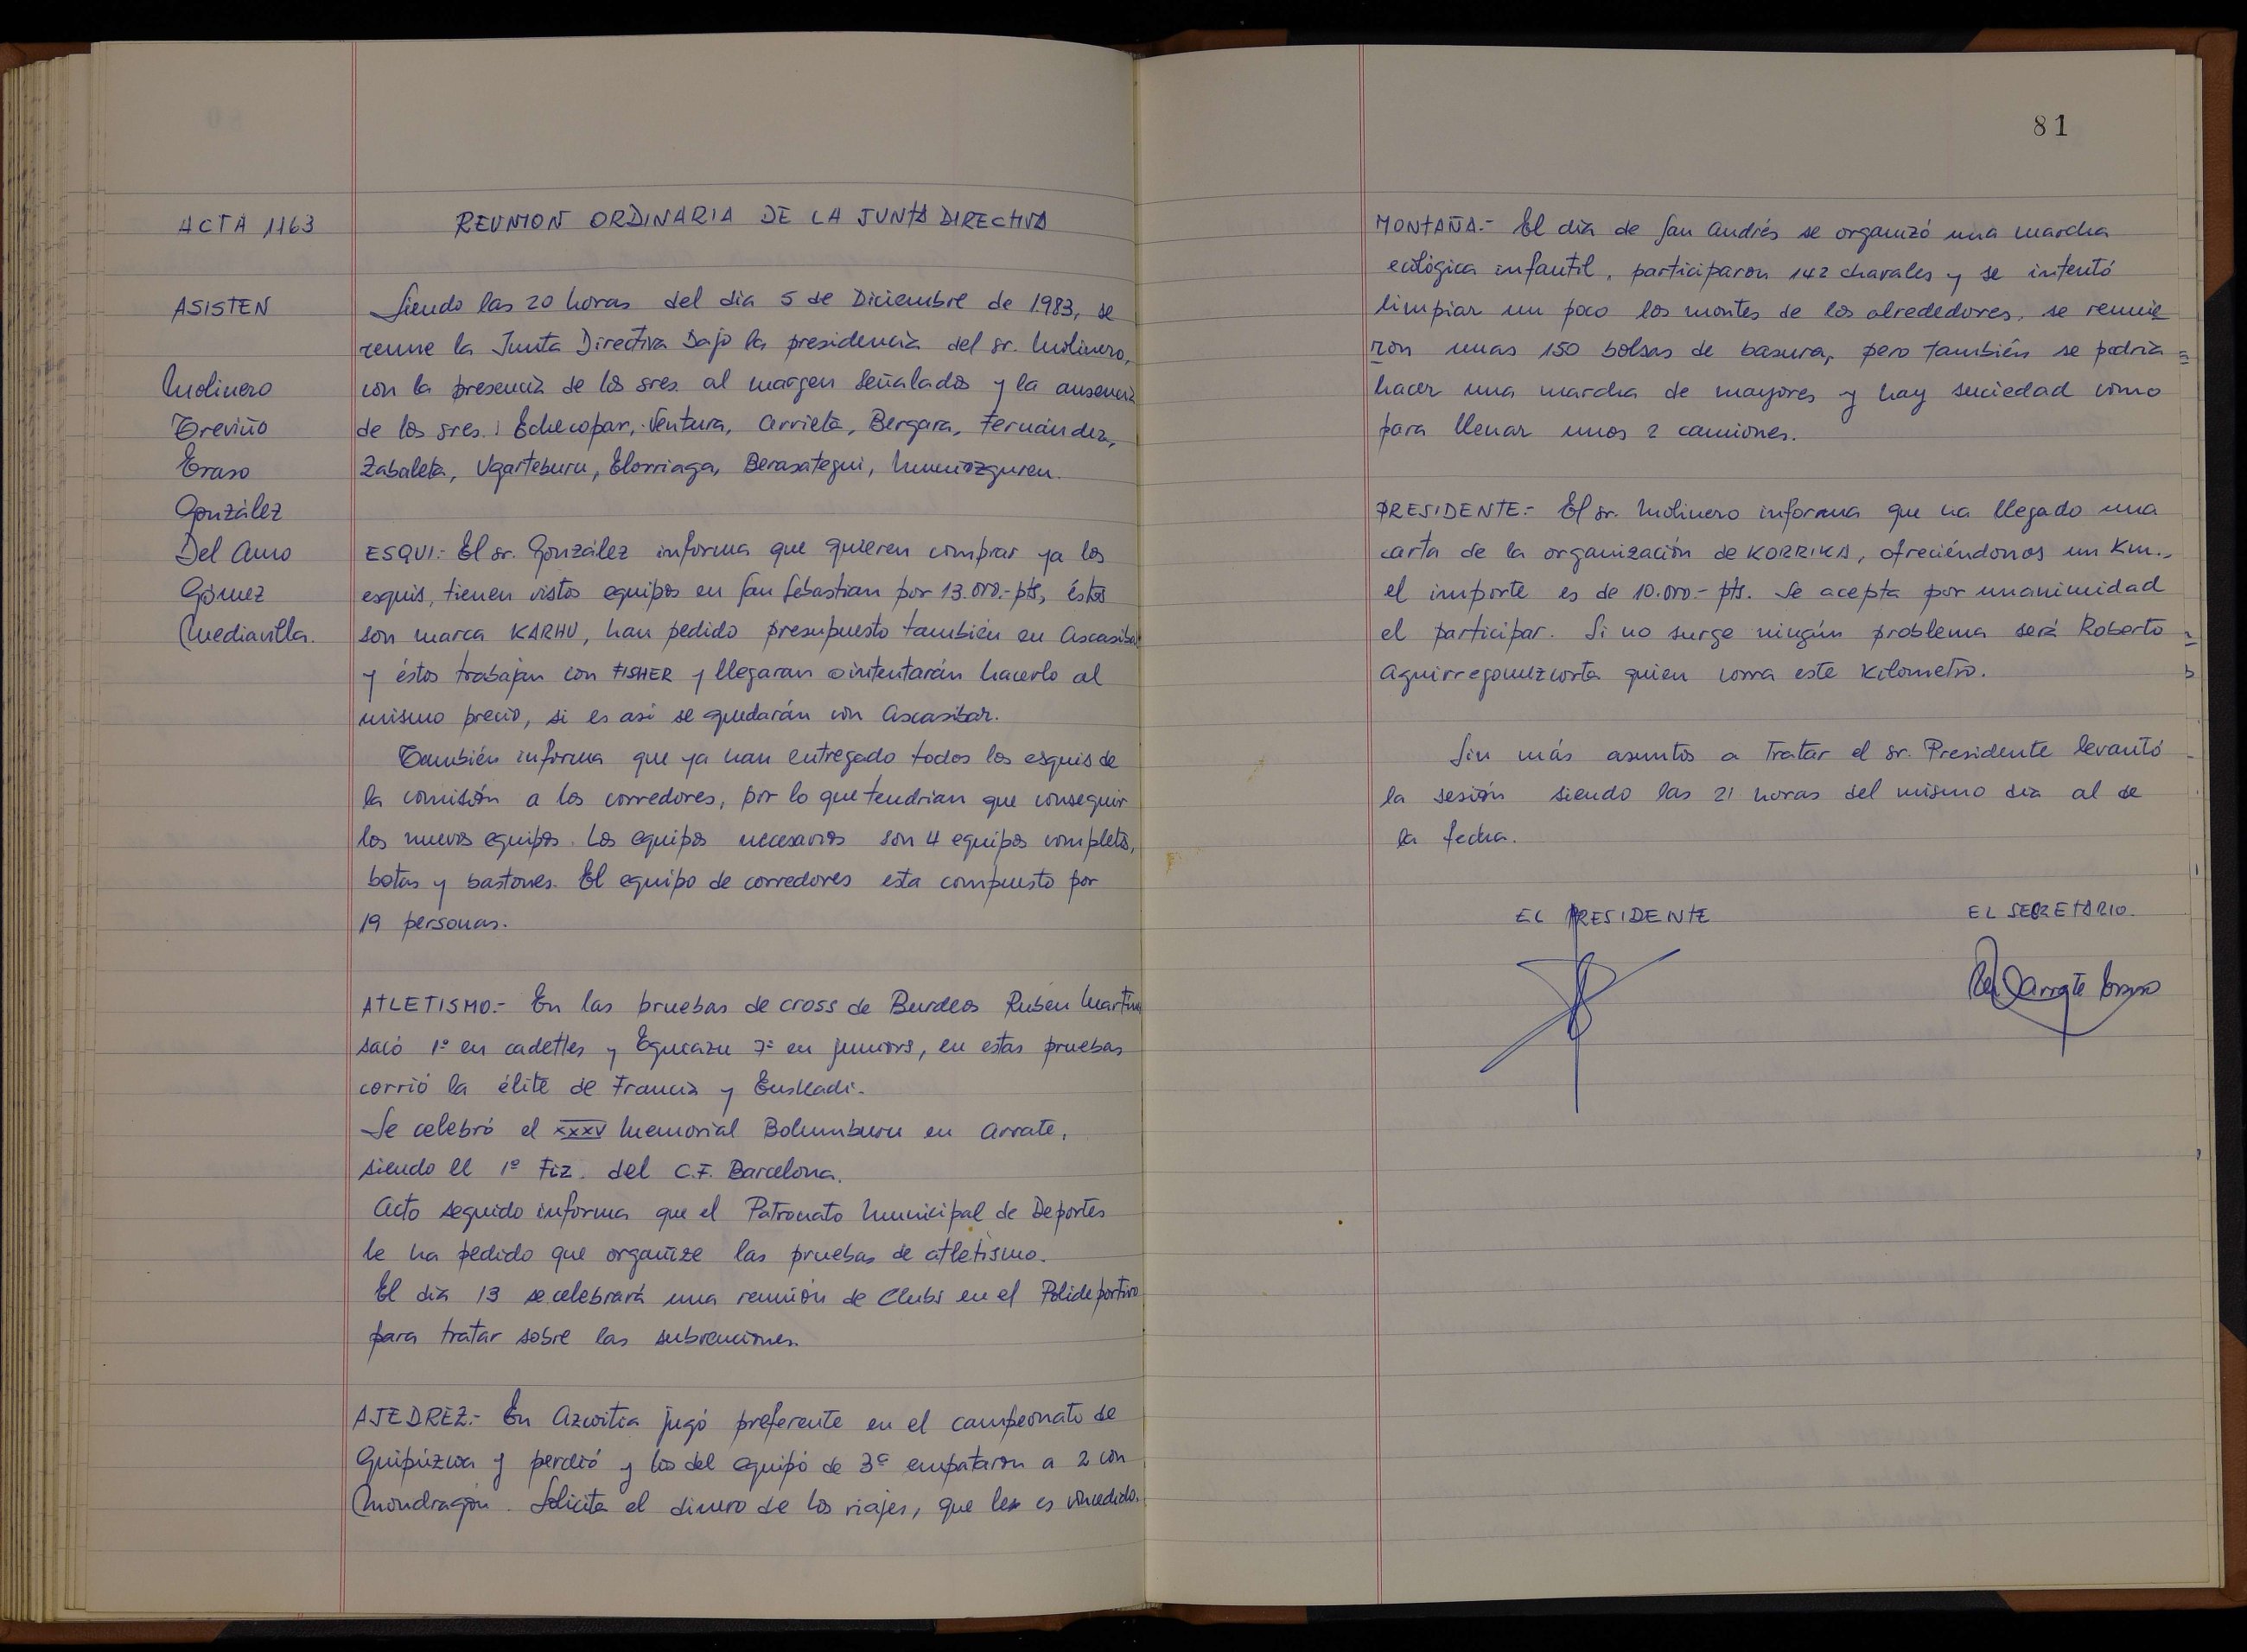 ACTA 1163
REUNION ORDINARIA DE LA JUNTA DIRECTIVA
ASISTEN
Molinero
Treviño
Eraso
González
Del Amo
Gómez
Mediavilla.
Siendo las 20 horas del dia 5 de Diciembre de 1.983, se
reune la Junta Directiva Bajo la presidencia del sr. Molinero,
con la presencia de los sres. al margen señalados y la ausencia
de los sres.: Echecopar, Ventura, Arrieta, Bergara, Fernández,
Zabaleta, Ugarteburu, Elorriaga, Berasategui, Muniozguren.
ESQUI:- El sr. González informa que quieren comprar ya los
esquis, tienen vistos equipos en San Sebastian por 13.000.- pts, éstos
son marca KARHU, han pedido presupuesto también en Ascasibar
y éstos trabajan con FISHER y llegaran o intentarán hacerlo al
mismo precio, si es asi se quedarán con Ascasibar.
También informa que ya han entregado todos los esquis de
la comisión a los corredores, por lo que tendrian que conseguir
los nuevos equipos. Los equipos necesarios son 4 equipos completos,
botas y bastones. El equipo de corredores esta compuesto por
19 personas.
ATLETISMO.- En las pruebas de cross de Burdeos Rubén Martin
sacó 1º en cadettes y Egurazu 7º en juniors, en estas pruebas
corrió la élite de Francia y Euskadi.
Se celebró el XXXV Memorial Bolumburu en Arrate,
siendo el 1º Fiz. del C.F. Barcelona.
Acto seguido informa que el Patronato Municipal de Deportes
le ha pedido que organize las pruebas de atletismo.
El dia 13 se celebrará una reunión de Clubs en el Polideportivo
para tratar sobre las subvenciones.
AJEDREZ.- En Azcoitia jugó preferente en el campeonato de
Guipúzcoa y perdió y los del equipo de 3ª empataron a 2 con
Mondragón. Solicita el dinero de los viajes, que le es concedido.
81
MONTAÑA.- El dia de San Andrés se organizó una marcha
ecológica infantil, participaron 142 chavales y se intentó
limpiar un poco los montes de los alrededores, se reunie
ron unas 150 bolsas de basura, pero también se podria
hacer una marcha de mayores y hay suciedad como
para llenar unos 2 camiones.
PRESIDENTE.- El sr. Molinero informa que ha llegado una
carta de la organización de KORRIKA, ofreciéndonos un Km.,
el importe es de 10.000.- pts. Se acepta por unanimidad
el participar. Si no surge ningún problema será Roberto
Aguirregomezcorta quien corra este Kilometro.
Sin más asuntos a Tratar el sr. Presidente levantó
la sesión siendo las 21 horas del mismo dia al de
la fecha.
EL PRESIDENTE
EL SECRETARIO.